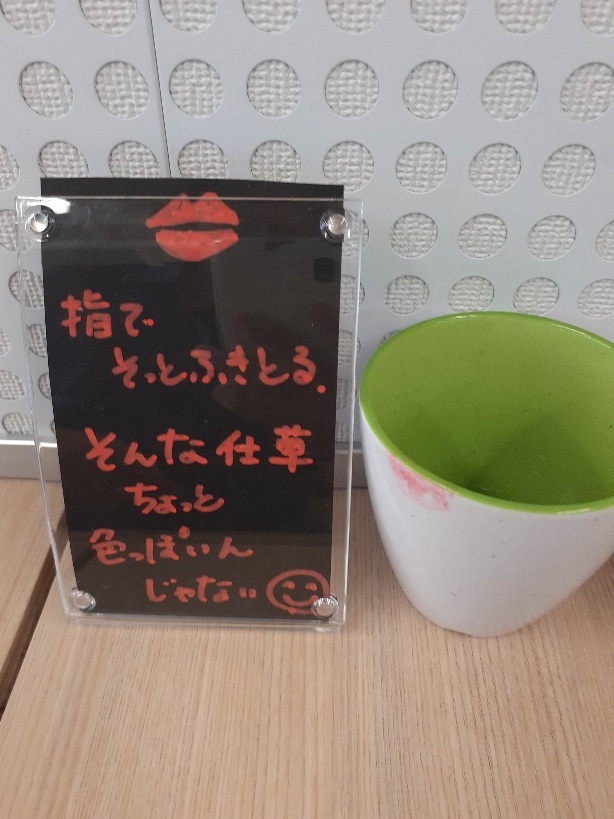 指で
そっとふきとる.
そんな仕草
ちょっと
色っぽいん
じゃない